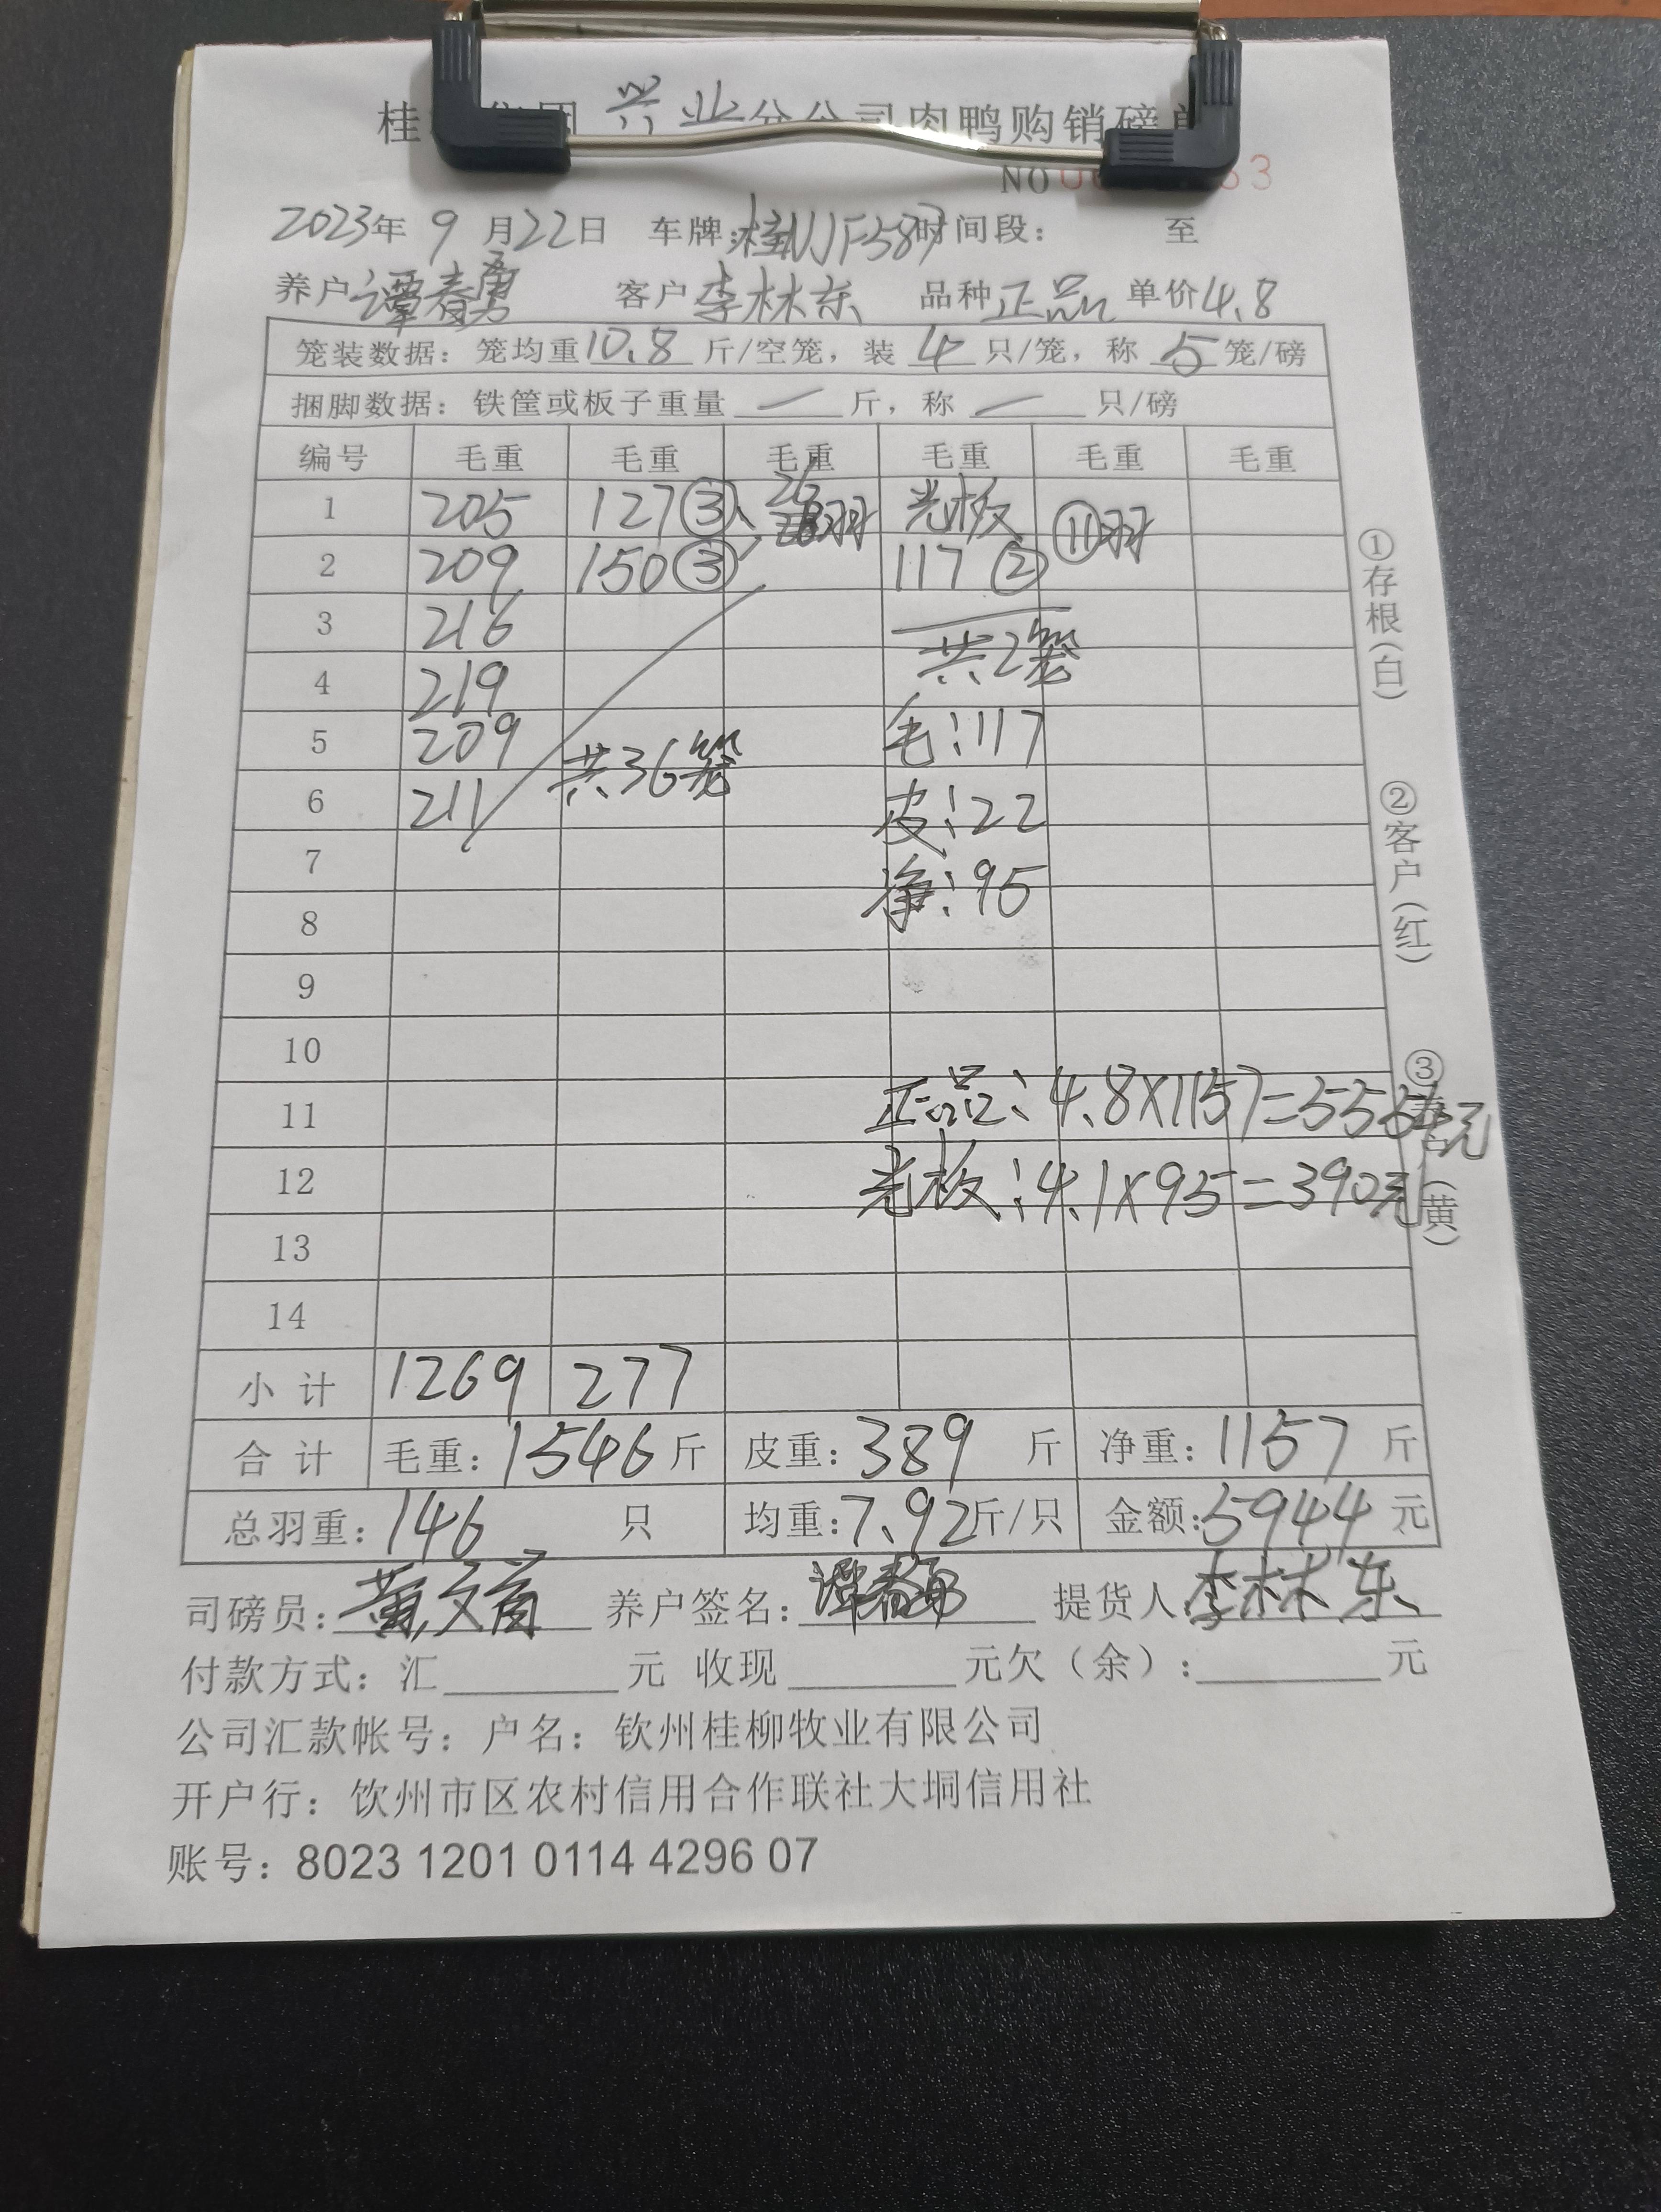 桂 集团 兴业 分公司肉鸭购销磅单
NO 3
2023年 9 月 22 日 车牌: 时间段: 至
养户 谭春勇 客户 李林东 品种 正品 单价 4.8
笼装数据: 笼均重 10.8 斤/空笼, 装 4 只/笼, 称 5 笼/磅
捆脚数据: 铁筐或板子重量 — 斤, 称 — 只/磅
编号 毛重 毛重 毛重 毛重 毛重 毛重
1 205 127③ 26羽 光板 ⑪羽
2 209 150③ 117②
3 216 共2笼
4 219
5 209 共36笼 毛:117
6 211 皮:22
7 净:95
8
9
10
11 正品:4.8X1157=5554元
12 光板:4.1X95=390元
13
14
小计 1269 277
合计 毛重: 1546 斤 皮重: 389 斤 净重: 1157 斤
总羽重: 146 只 均重: 7.92 斤/只 金额: 5944 元
司磅员: 养户签名: 谭春勇 提货人 李林东
付款方式: 汇 元 收现 元欠(余): 元
公司汇款帐号: 户名: 钦州桂柳牧业有限公司
开户行: 钦州市区农村信用合作联社大垌信用社
账号: 8023 1201 0114 4296 07
①存根(白)
②客户(红)
③ (黄)